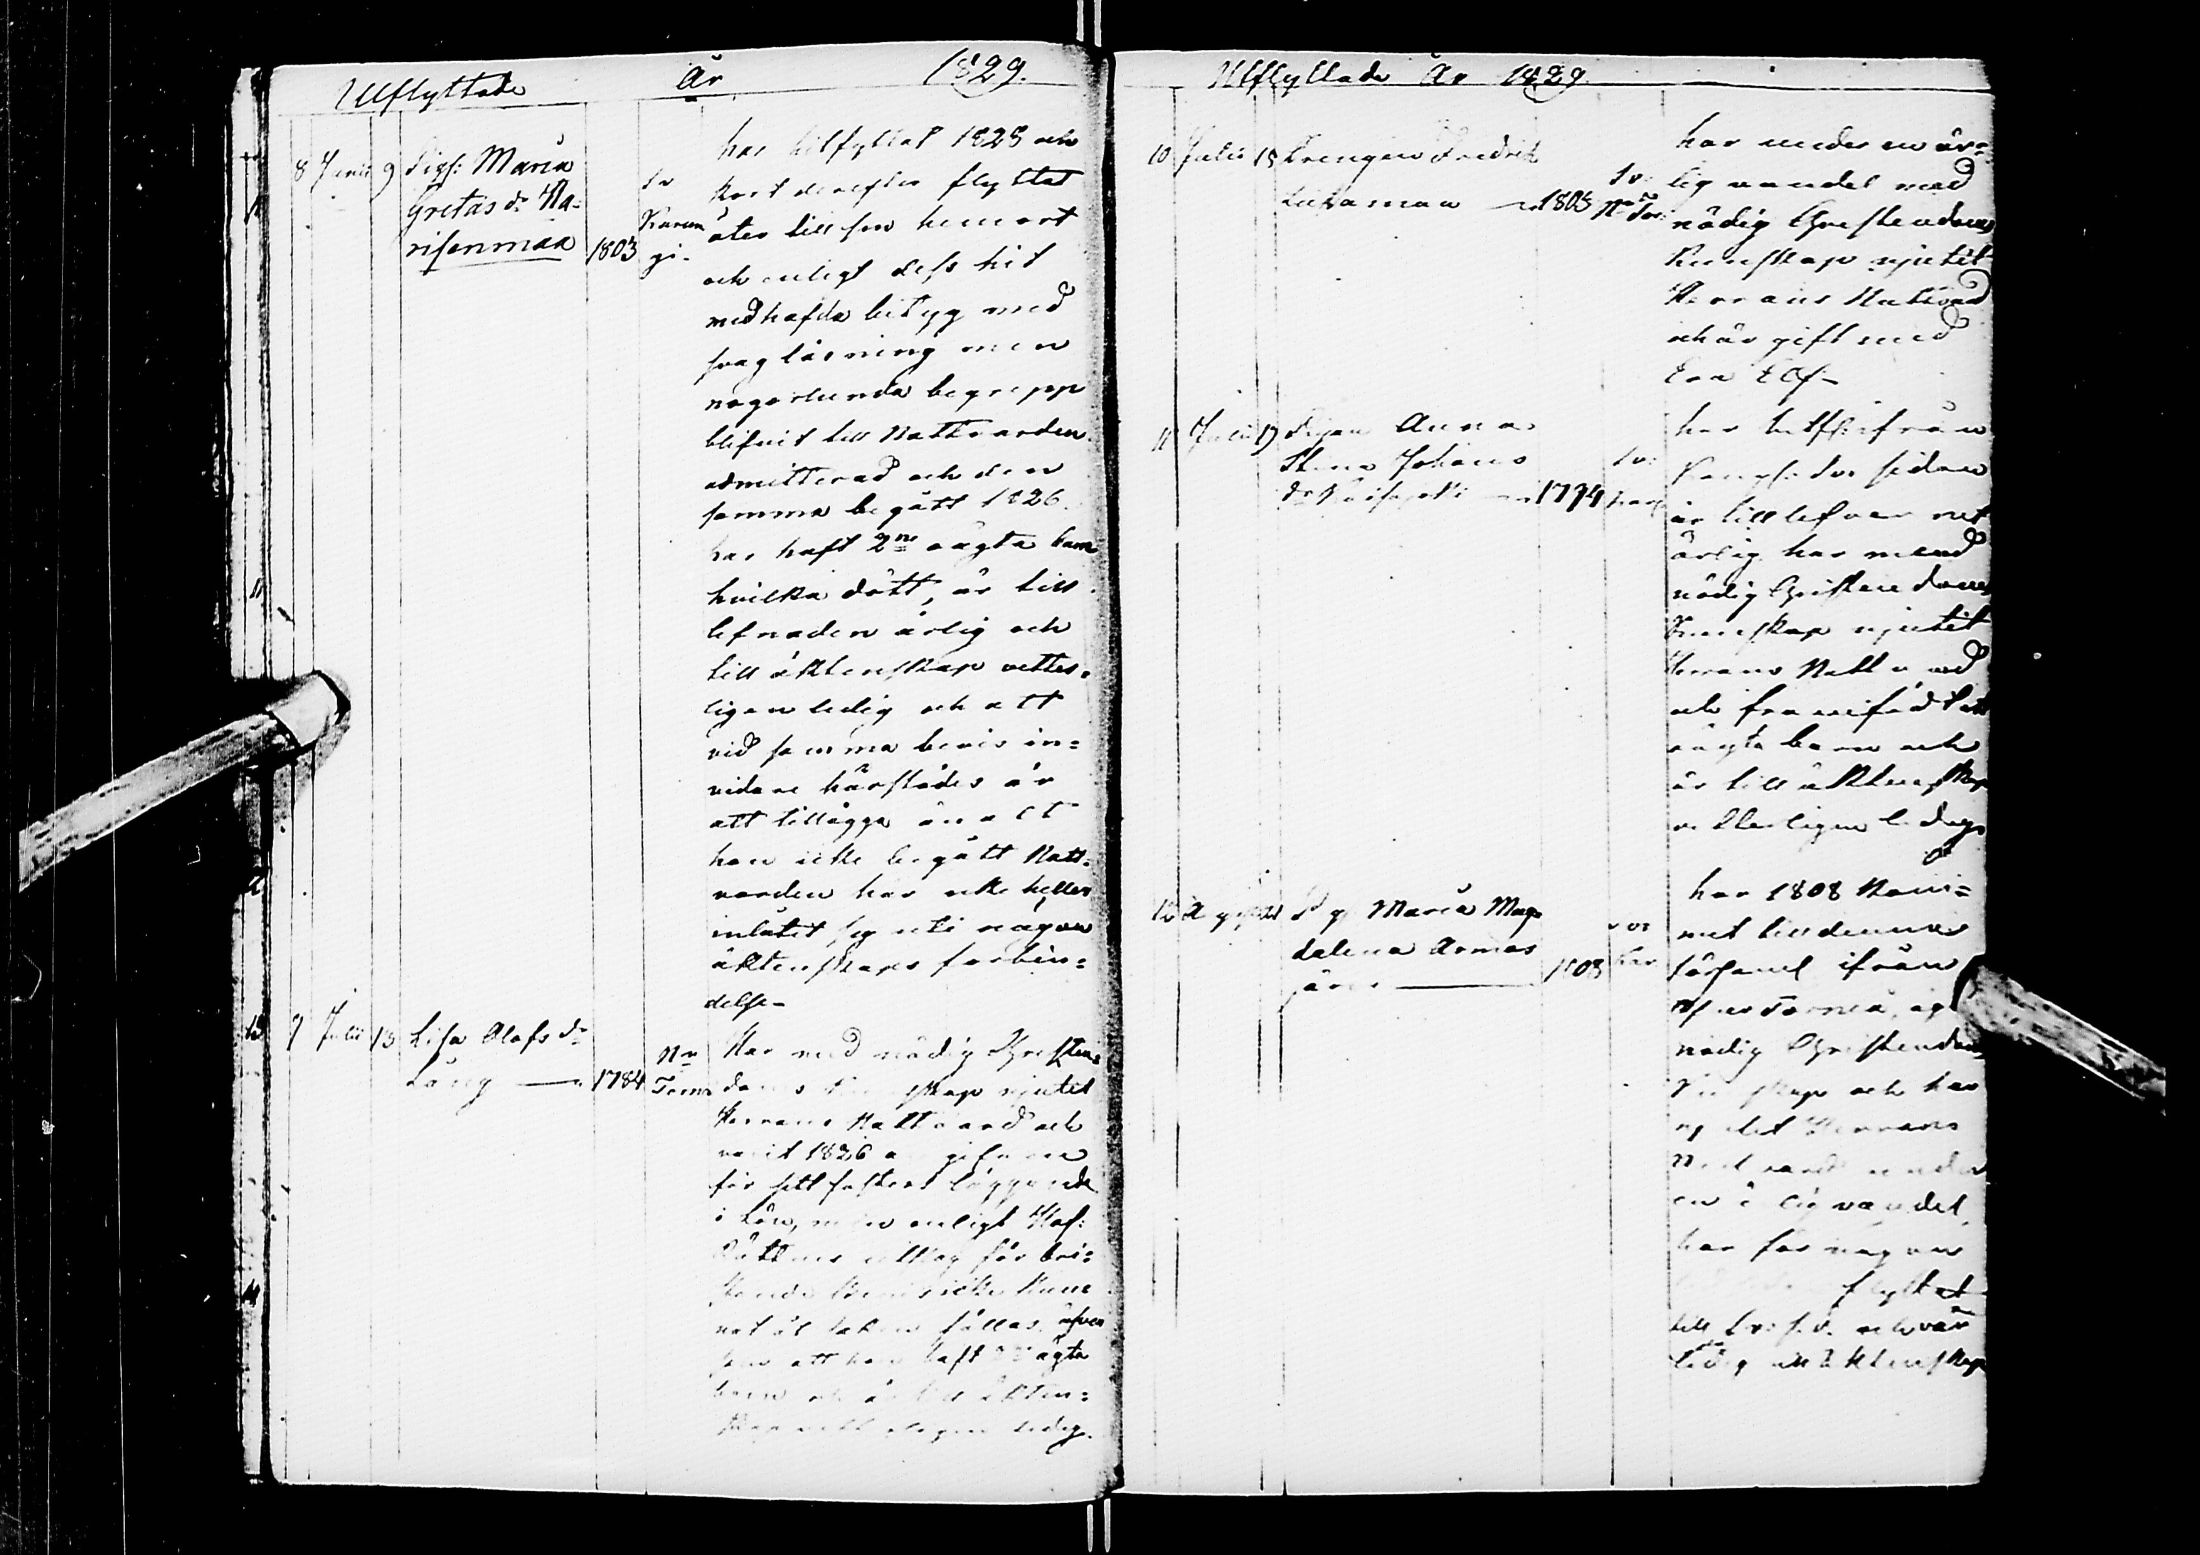 Utflyttade År 1829.
8 Junii 9 Pigs: Maria
Gretas dr Ma=
risenmaa 1803
Sv
Karun
gi.
har hitflyttat 1828 och
kort derefter flyttat
åter till sin hemort
och enligt dess hit
medhafda betyg med
svag läsning men
någorlunda begrepp
blifvit till Nattvarden
admitterad och den
samma begått 1826.
har haft 2ne oägta barn
hvilka dött, är till
lefnaden ärlig och
till äktenskap vitter=
ligen ledig och att
vid samma bevis in=
vidare härstädes är
att tillägga än att
hon icke begått Natt=
varden har icke heller
inlåtit sig uti någon
äktenskaps forbin=
delse-
9 Julii 13 Lisa Olofs dr
Lång 1784
Nr
Torne
Har med nödig Christen=
doms Kunskap njutit
Herrans Nattvard och
varit 1826 angifven
för sitt fosters läggande
i lön, men enligt Hof=
Rättens utslag för bri=
stande bevis icke kun
nat åt saken fällas. äfven
som att hon haft oägta
barn och är till äkten=
skap vitterligen ledig.
Utflyttade År 1829.
10 Julii 15 Drengen Fredrik
1803
Sv:
Nr Tor:
har under en är=
lig vandel med
nödig Christendoms
Kunskap njutit
Herrans Nattvard
och är gift med
11 Julii 19 Pigan Anna
Stina Johans
dr 1774
Sv:
har hitfl: ifrån
sidan
är till lefvernet
ärlig har med
nödig Christendoms
Kunskap njutit
Herrans Nattvard
och framfödt ett
oägta barn och
är till äktenskap
vitterligen ledig
12 21 Pig Maria Mag
dalena Armas
1808
har 1808 Kom=
mit till denna
församl ifrån
Öfver Torneå, äg
nödig Christendoms
Kunskap och har
njutit Herrans
Nattvard under
en ärlig vandel,
har för någon
flyttat
till och var
ledig till äktenskap